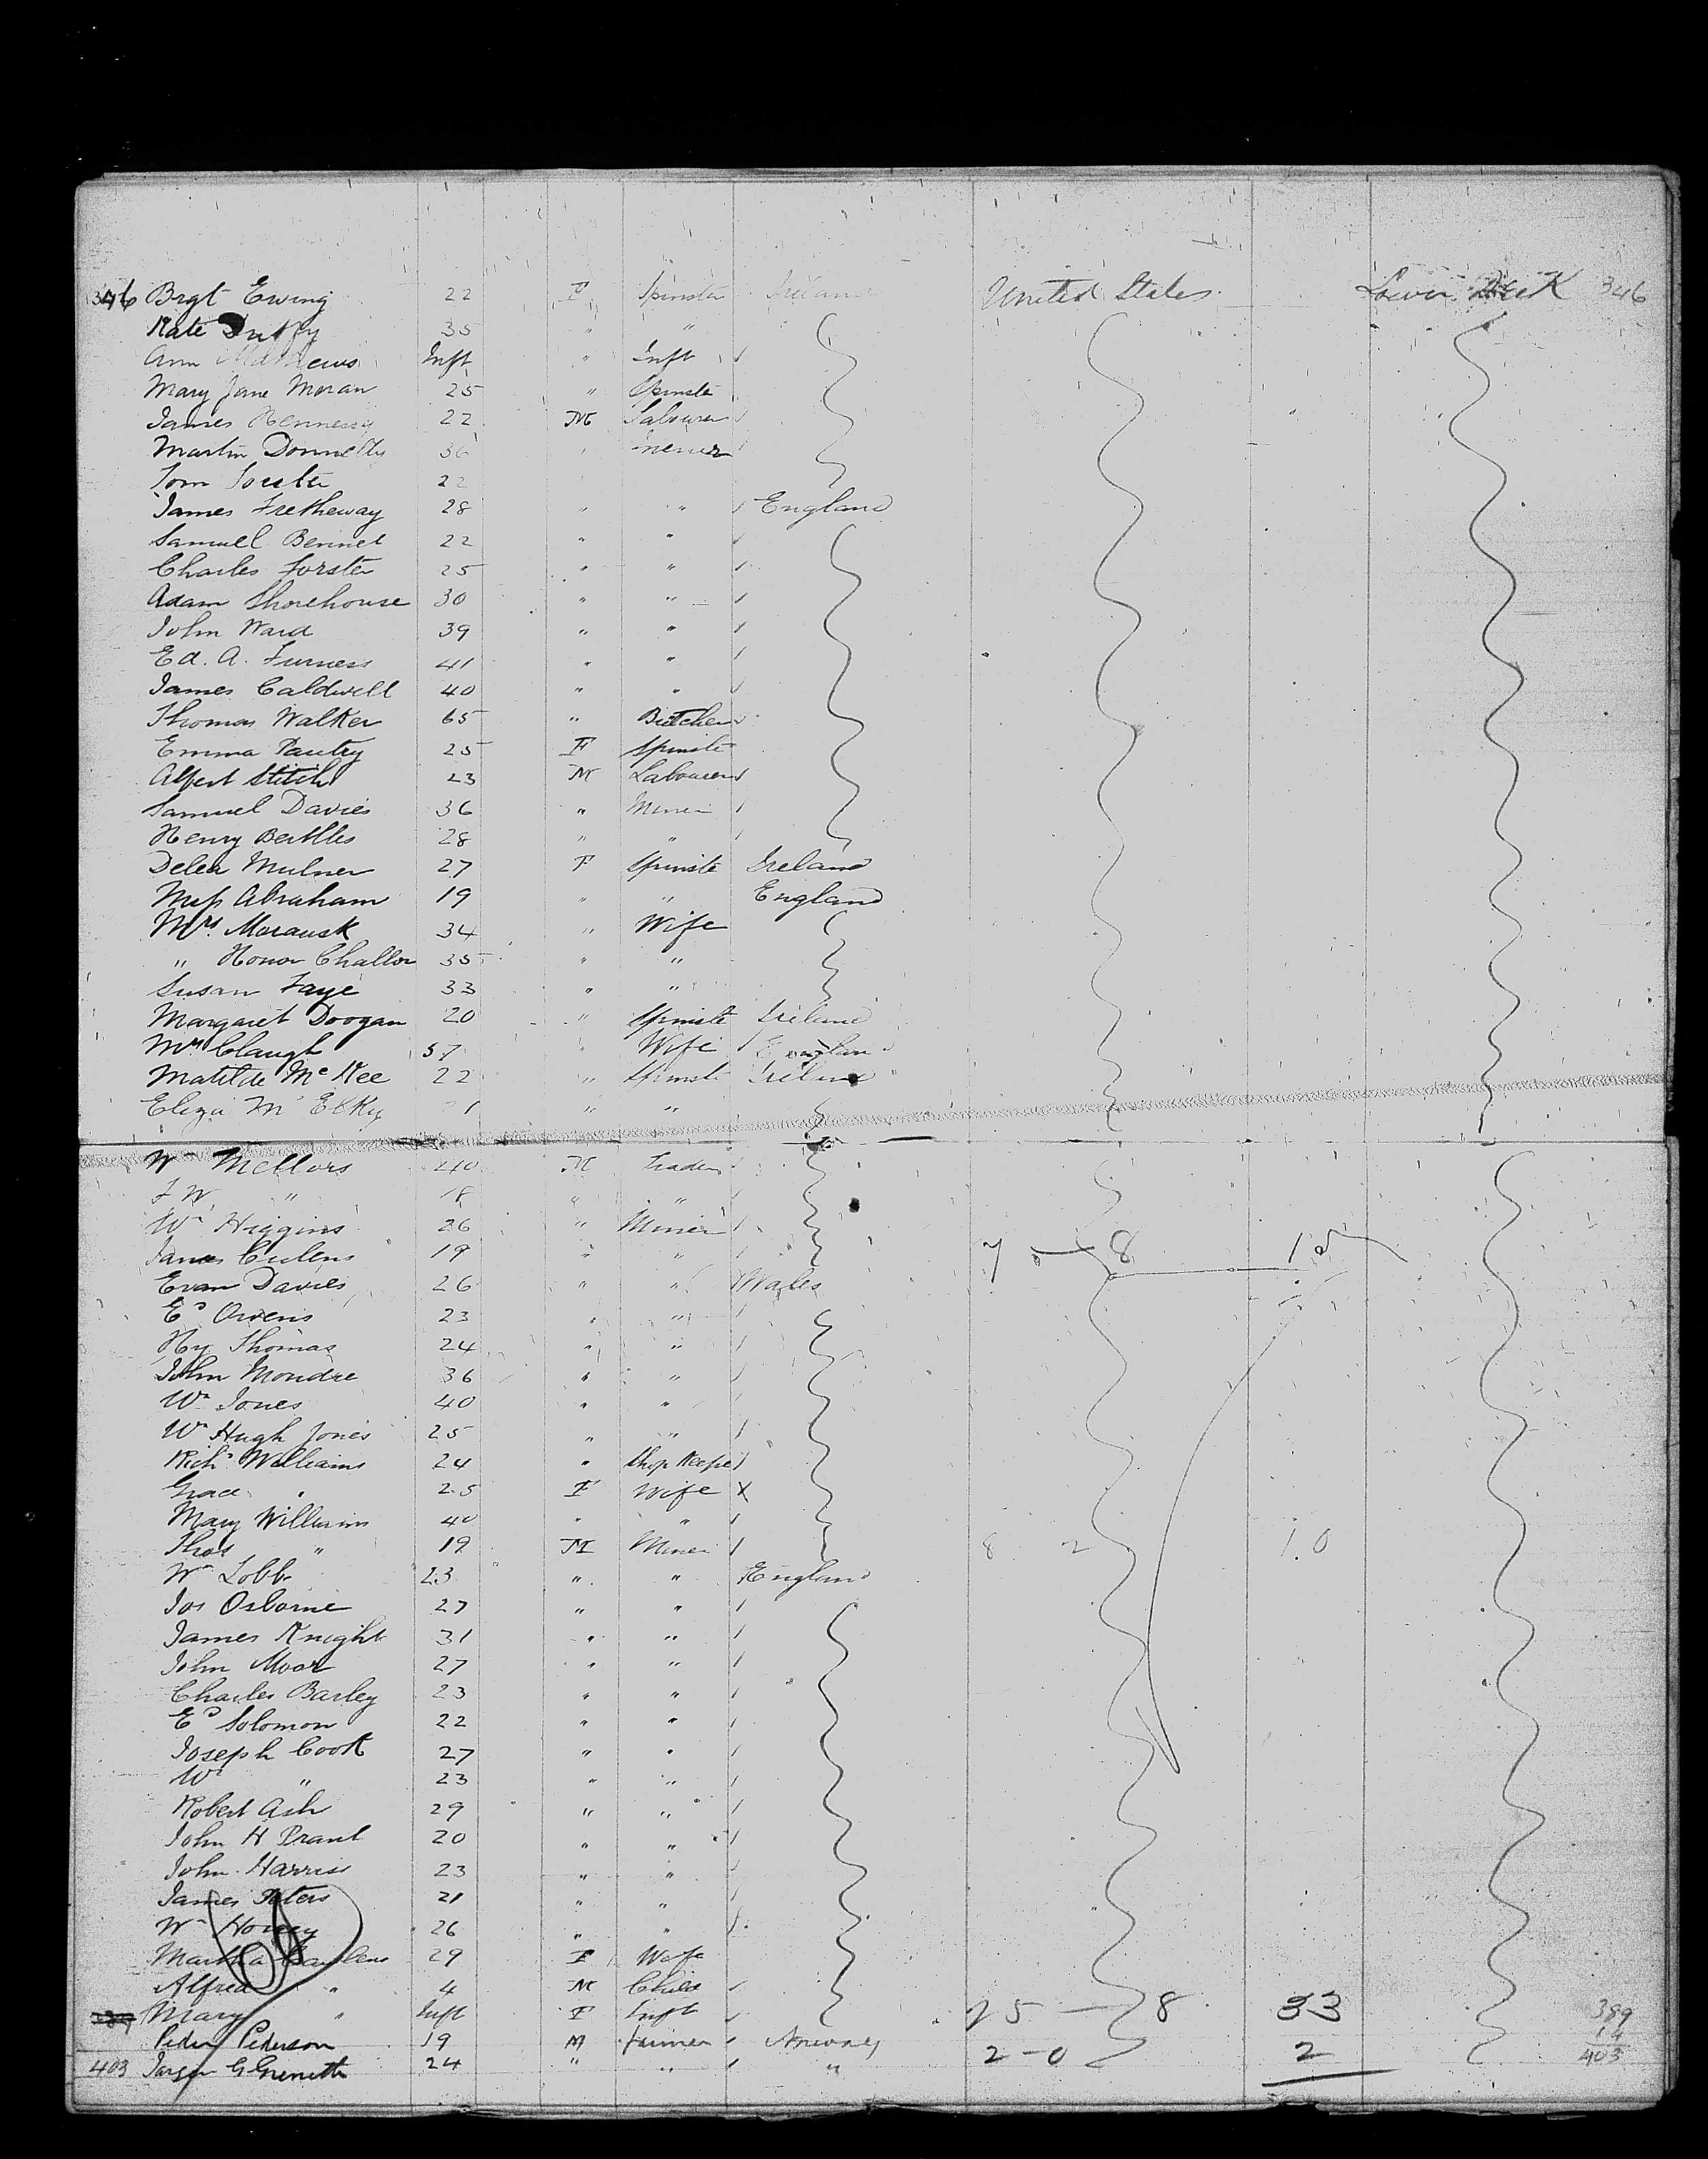 346 Brgt Ewing 22 F Spinster Ireland United States Lower Deck 346
Kate Duffy 35 " "
Ann Mathews Inft " Inft
Mary Jane Moran 25 " Spinste
James Hennessy 22 M Labourer
Martin Donnelly 36
Tom 22
James Tretheway 28 " " England
Samuel Bennet 22 " "
Charles Forster 25 " "
Adam Shorehouse 30 " "
John Ward 39 " "
Ed. A. Furness 41 " "
James Caldwell 40 " "
Thomas Walker 65 " Butcher
Emma 25 F Spinste
Albert Stitch 23 M Labourer
Samuel Davies 36 " Miner
Henry 28 " "
Delea Mulner 27 F Spinste Ireland
Miss Abraham 19 " " England
Mrs. Morausk 34 " Wife
" Honor Challor 35 " "
Susan Faye 33 " "
Margaret Doogan 20 " Spinste Ireland
Mrs Claugh 57 " Wife England
Matilda Mc Kee 22 " Spinst Ireland
Eliza Mc Elky " "
Wm Mellors 40 M Trader
F W " 18 " "
Wm Higgins 26 " Miner
James Cullens 19 " " 7 — 8 1
Evan Davies 26 " " Wales
Ed Owens 23 " "
Hy Thomas 24 " "
John Moudre 36 " "
Wm Jones 40 " "
Wm Hugh Jones 25 " "
Richd Williams 24 " Shop Keeper
Grace " 25 F Wife X
Mary Williams 40 " "
Thos " 19 M Miner 8 2 1.0
Wm Lobb 23 " " England
Jos Osborne 27 " "
James Knight 31 " "
John Moor 27 " "
Charles Barley 23 " "
Ed Solomon 22 " "
Joseph Cook 27 " "
Wm " 23 " "
Robert Ash 29 " "
John H Praut 20 " "
John Harriss 23 " "
James Peters 21 " "
Wm 26 " "
Martha 29 F Wife
Alfred " 4 M Child
389 Mary " Inft F Inft 25 — 8 33 389
Peder Pederson 19 M Farmer 2-0 2 14
403 24 " " " 403